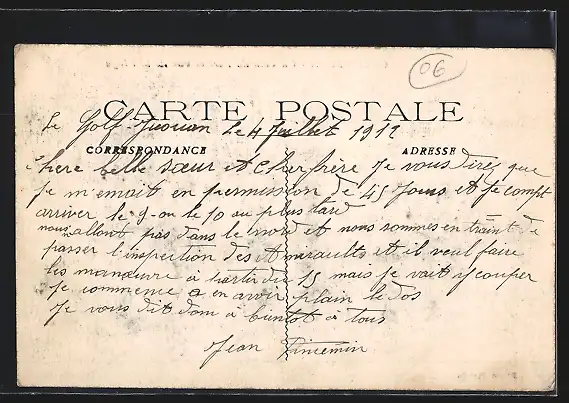 06
CARTE POSTALE
Le Golf-Juouan Le 4 Juillet 1912
CORRESPONDANCE ADRESSE
Chere belle sœur et Cher frère Je vous direz que
Je m'emait en permission de 45 Jours et je compt
arriver le 9 ou le 10 au plus tard
nous allont pas dans le nord et nous sommes en traint de
passer l'inspection des Amiraults et il veul faire
les manœuvre à partir du 15 mais je vait y couper
Je commence a en avoir plain le dos
Je vous dit dom à bientot a tous
Jean